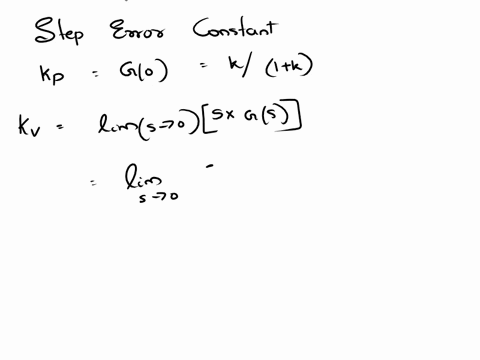 Step Error Constant
kp = G(0) = k/(1+k)
Kv = lim(s→0)[s× G(s)]
= lim
s→0